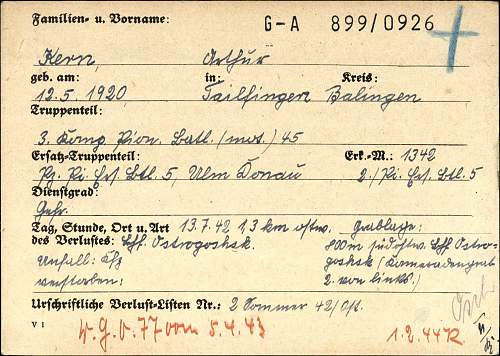 Familien- u. Vorname: G-A 899/0926
Kern, Arthur
geb. am: in: Kreis:
12.5.1920 Tailfingen Balingen
Truppenteil:
3. Komp. Pion. Batl. (mot.) 45
Ersatz-Truppenteil: Erk.-M.: 1342
Pi. Ers. Btl. 5, Ulm Donau 2./Pi. Ers. Btl. 5
Dienstgrad:
Gefr.
Tag, Stunde, Ort u. Art 13.7.42 13 km ostw. Grablage:
des Verlustes: Ostrogoshsk. 800m südostw. Ostro-
Unfall: Kfz goshsk (Kameradengrab
verstorben: 2. von links)
Urschriftliche Verlust-Listen Nr.: 2 Sommer 42/Ost.
V 1 W.G.V. 77 vom 5.4.43 1.2.44 R